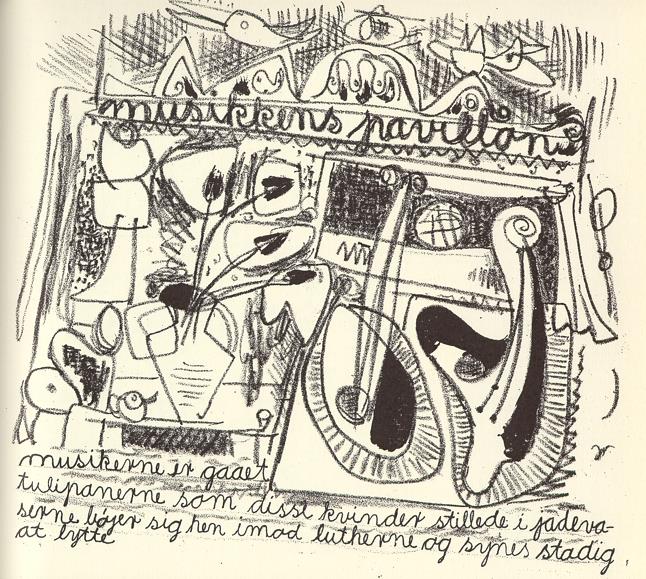 musikkens pavillon
musikerne er gaaet
tulipanerne som disse kvinder stillede i jadeva-
serne bøjer sig hen imod lutherne og synes stadig
at lytte